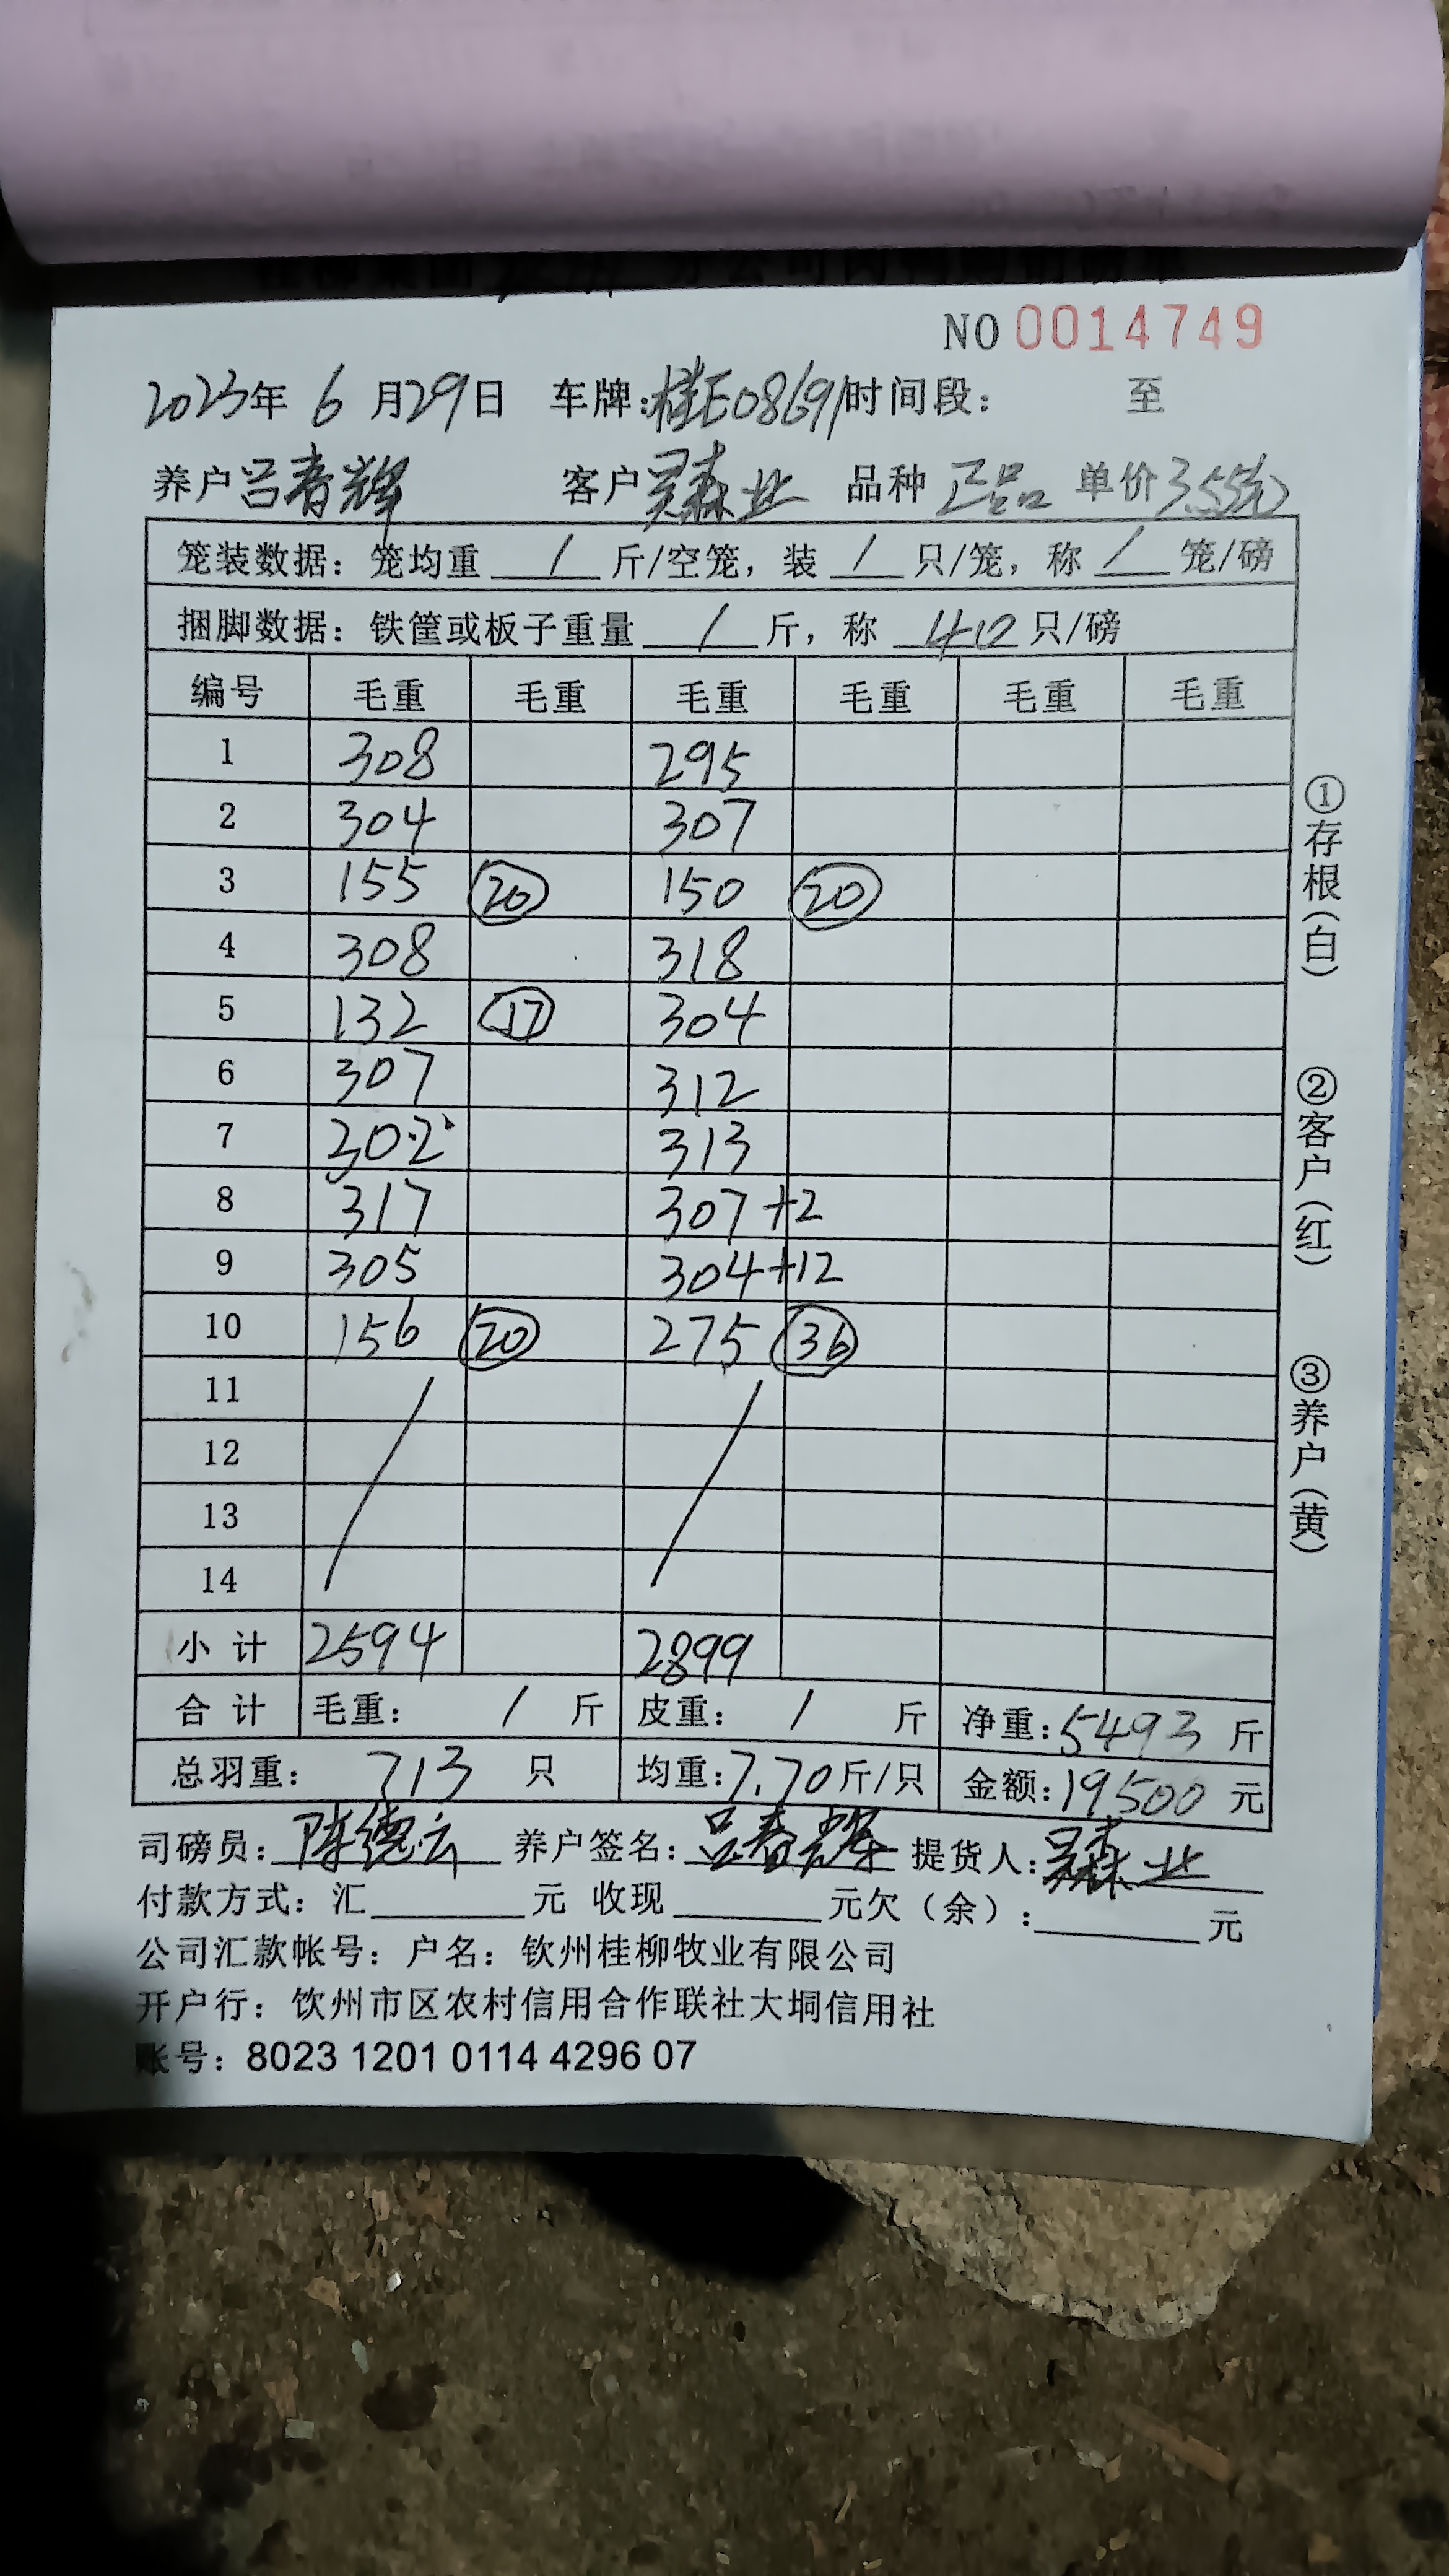 NO 0014749
2023年 6 月29日 车牌:桂E08691时间段: 至
养户吕春辉 客户吴森业 品种 正品 单价3.55元
笼装数据：笼均重 / 斤/空笼，装 / 只/笼，称 / 笼/磅
捆脚数据：铁筐或板子重量 / 斤，称 40 只/磅
编号 毛重 毛重 毛重 毛重 毛重 毛重
1 308 295
2 304 307
3 155 20 150 20
4 308 318
5 132 17 304
6 307 312
7 302 313
8 317 307 +2
9 305 304 +12
10 156 20 275 36
11 / /
12
13
14
小 计 2594 2899
合 计 毛重: / 斤 皮重: / 斤 净重:5493 斤
总羽重: 713 只 均重:7.70斤/只 金额:19500 元
司磅员:陈德云 养户签名:吕春辉 提货人:吴森业
付款方式: 汇 元 收现 元欠（余）: 元
公司汇款帐号: 户名: 钦州桂柳牧业有限公司
开户行: 钦州市区农村信用合作联社大垌信用社
账号: 8023 1201 0114 4296 07
①存根（白）
②客户（红）
③养户（黄）